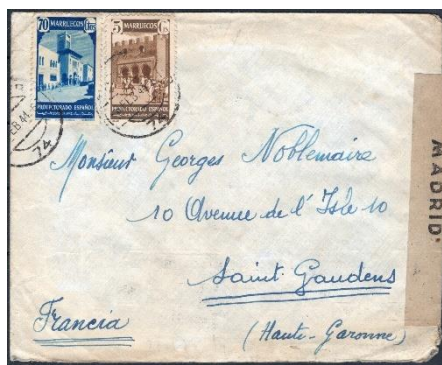 70 MARRUECOS Cts
PROTECTORADO ESPAÑOL
5 MARRUECOS Cts
PROTECTORADO ESPAÑOL
74
Monsieur Georges Noblemaire
10 Avenue de l'Isle 10
Saint Gaudens
Francia
(Haute-Garonne)
MADRID.